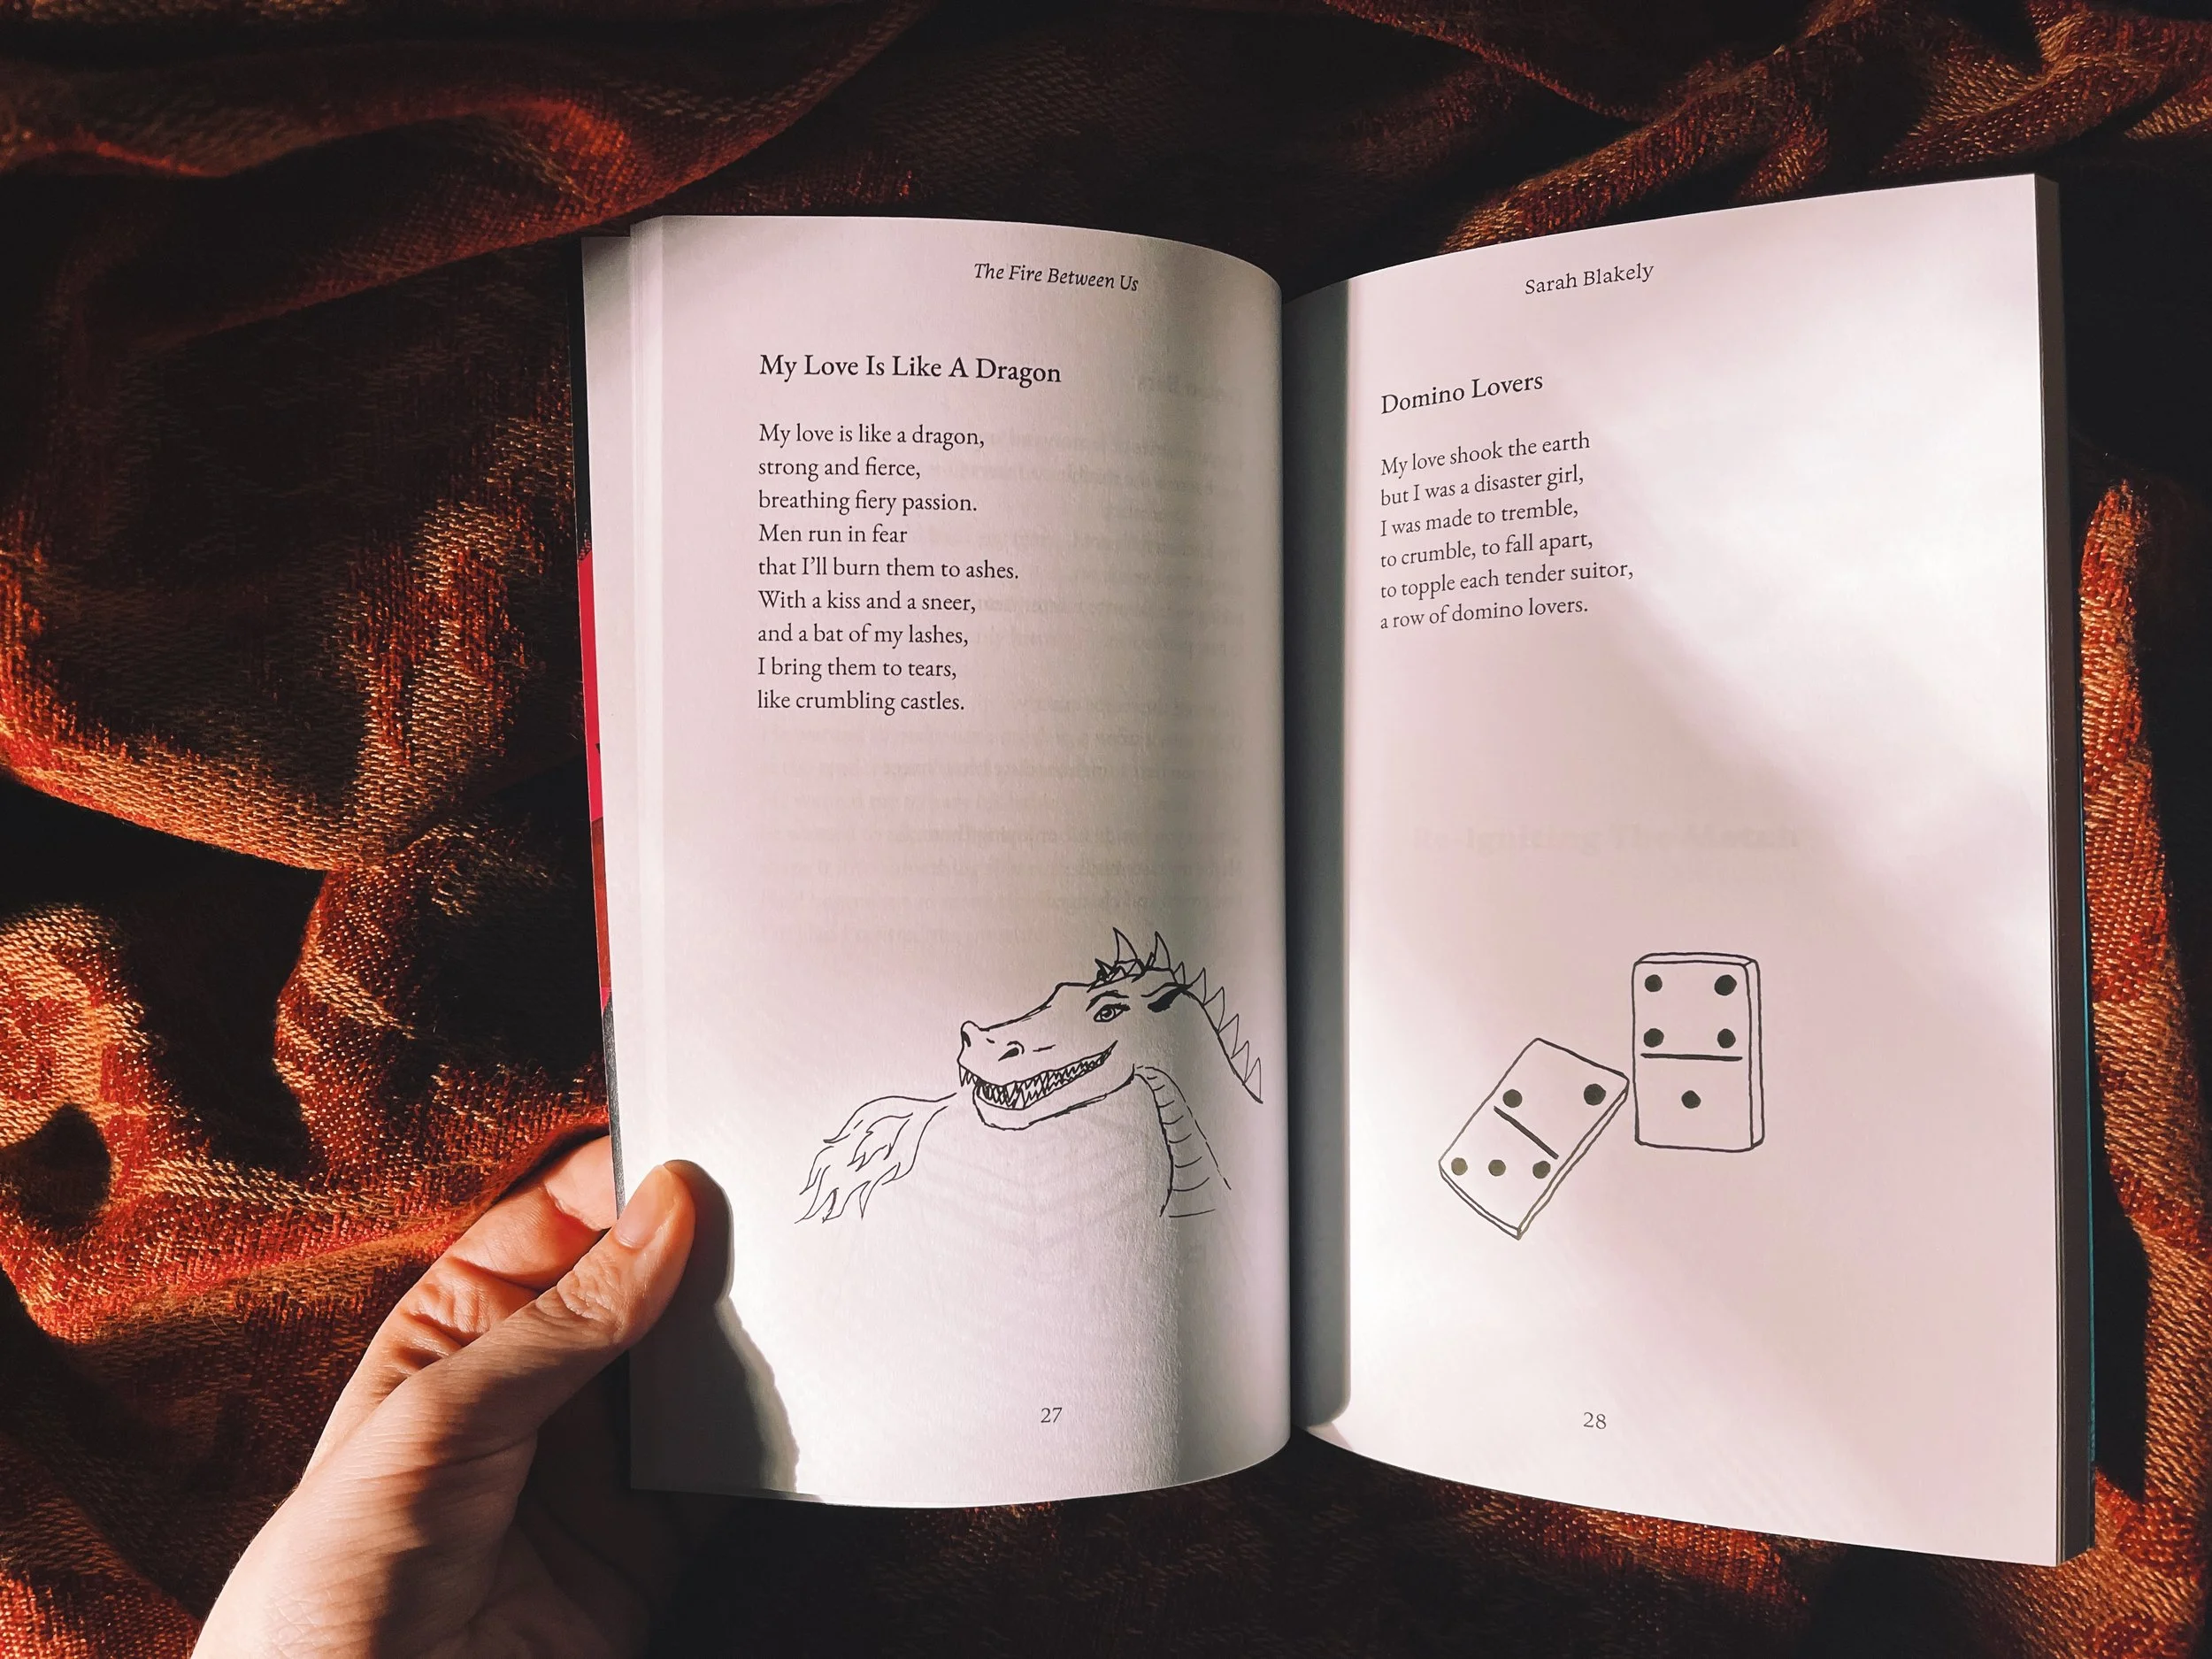 The Fire Between Us
My Love Is Like A Dragon
My love is like a dragon,
strong and fierce,
breathing fiery passion.
Men run in fear
that I'll burn them to ashes.
With a kiss and a sneer,
and a bat of my lashes,
I bring them to tears,
like crumbling castles.
27
Sarah Blakely
Domino Lovers
My love shook the earth
but I was a disaster girl,
I was made to tremble,
to crumble, to fall apart,
to topple each tender suitor,
a row of domino lovers.
28